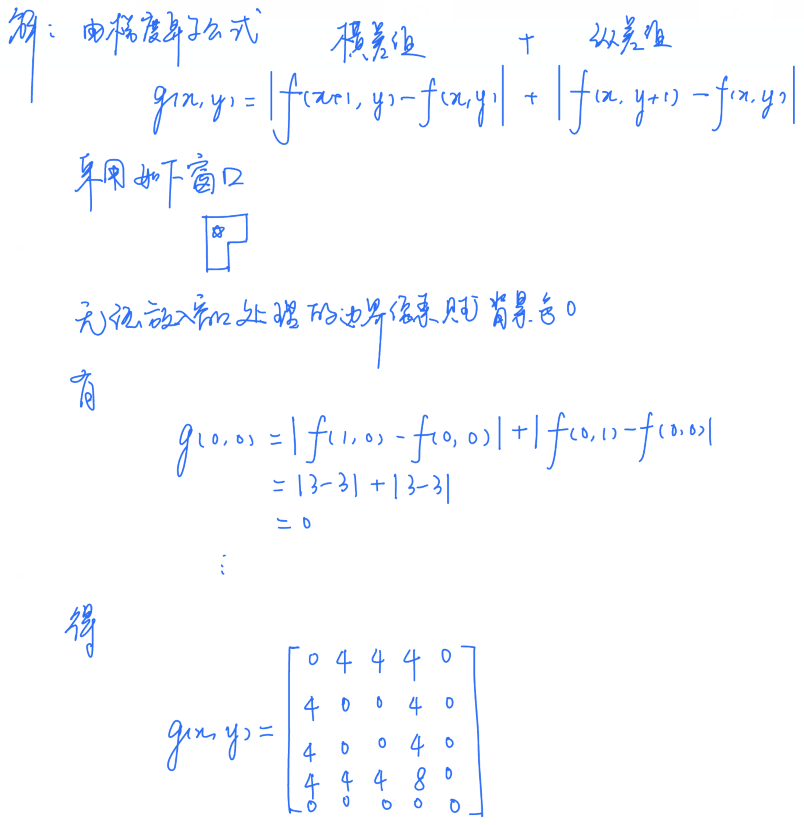 解：由梯度算子公式 横差值 + 纵差值
g(x, y) = |f(x+1, y) - f(x, y)| + |f(x, y+1) - f(x, y)|
采用如下窗口
无法放入窗口处理的边界像素则背景色0
有
g(0, 0) = |f(1, 0) - f(0, 0)| + |f(0, 1) - f(0, 0)|
= |3-3| + |3-3|
= 0
⋮
得
0 4 4 4 0
4 0 0 4 0
g(x, y) =
4 0 0 4 0
4 4 4 8 0
0 0 0 0 0